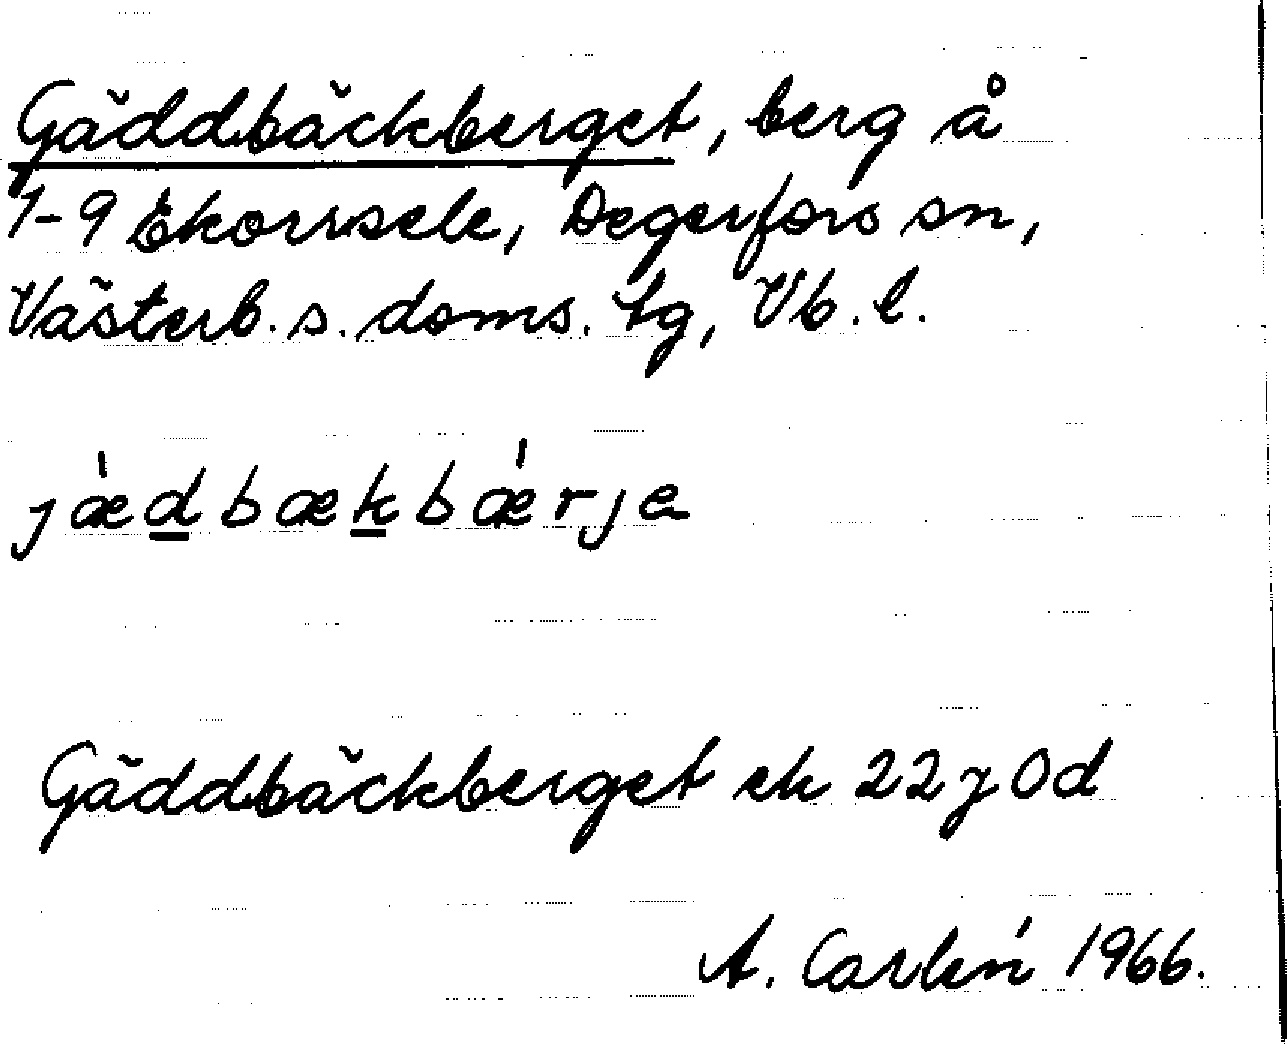 Gäddbäckberget, berg å
1-9 Ekorrsele, Degerfors sn,
Västerb. s. doms. tg, Vb. l.
jǽdbækbǽrje
Gäddbäckberget ek 22J0d
A. Carlén 1966.